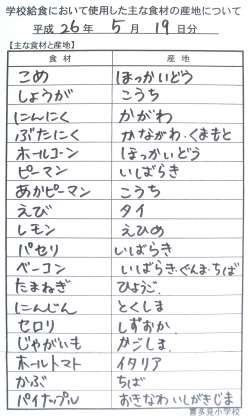 学校給食において使用した主な食材の産地について
平成 26 年 5 月 19 日分
【主な食材と産地】
食材 産地
こめ ほっかいどう
しょうが こうち
にんにく かがわ
ぶたにく かながわ・くまもと
ホールコーン ほっかいどう
ピーマン いばらき
あかピーマン こうち
えび タイ
レモン えひめ
パセリ いばらき
ベーコン いばらき・ぐんま・ちば
たまねぎ ひょうご
にんじん とくしま
セロリ しずおか
じゃがいも かごしま
ホールトマト イタリア
かぶ ちば
パイナップル おきなわ いしがきじま
喜多見小学校